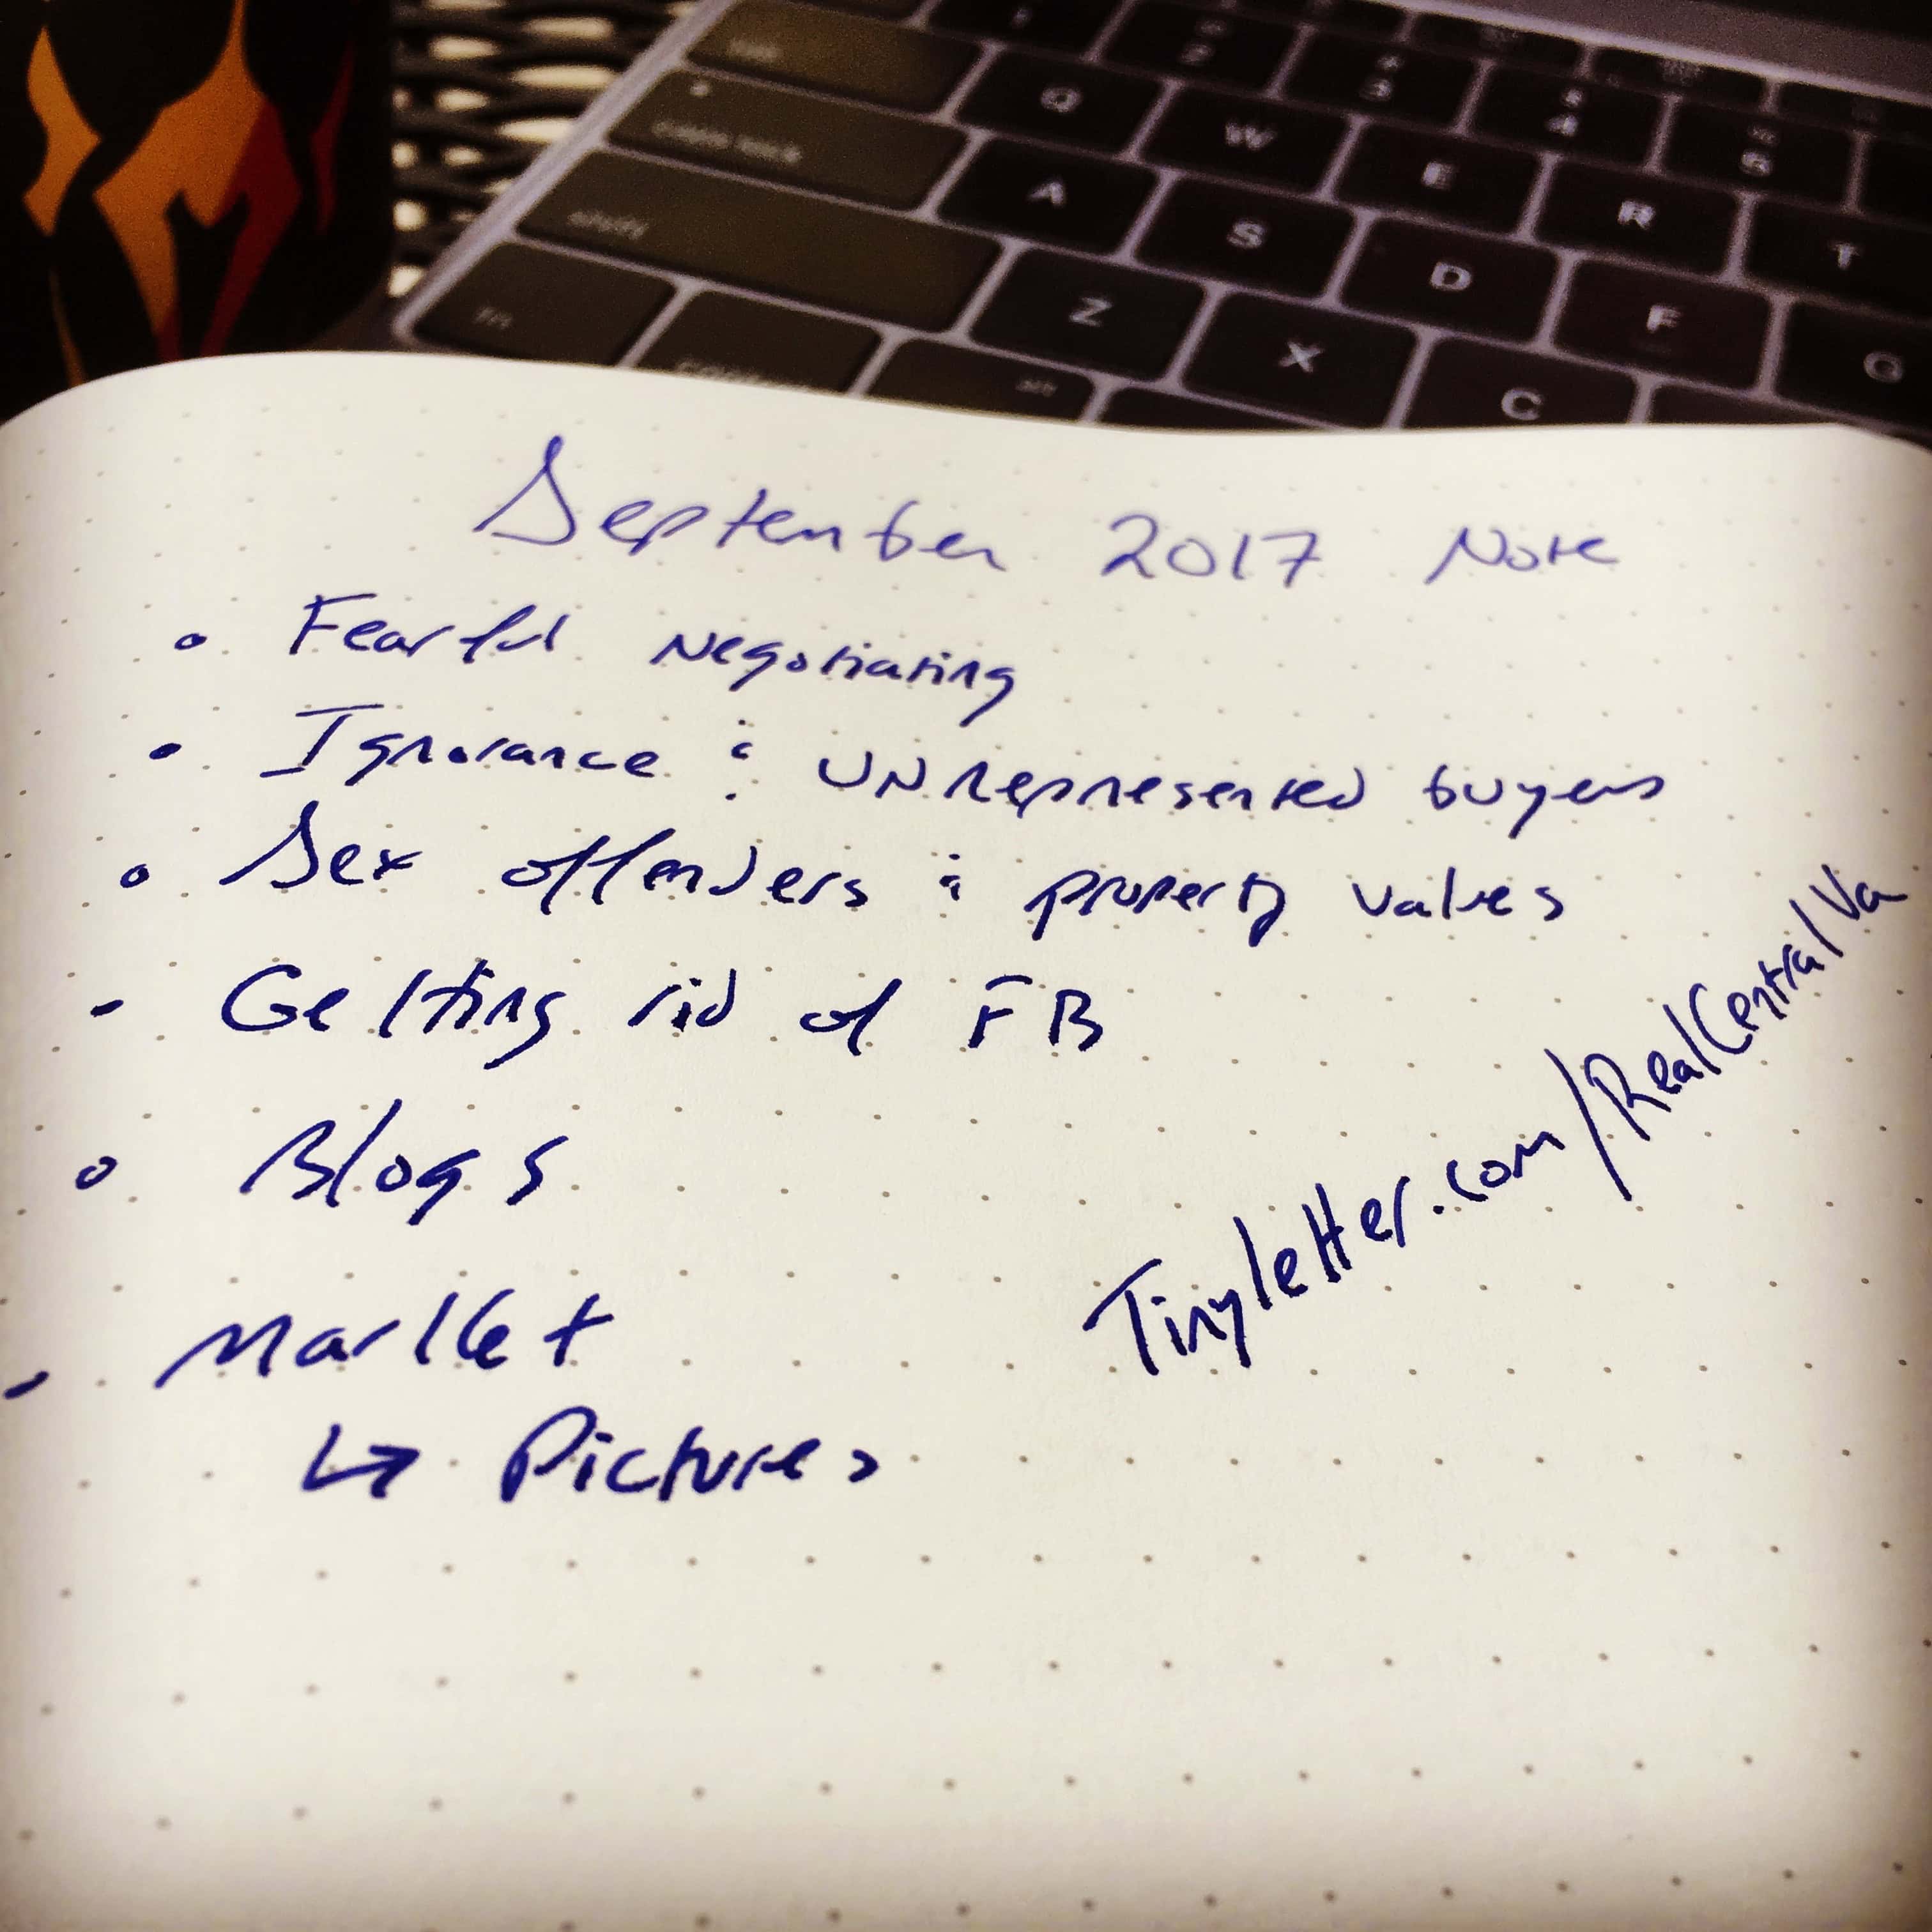 tab
caps lock
shift
fn
control
alt
1
2
3
4
5
Q W E R T
A S D F G
Z X C
September 2017 Note
• Fearful Negotiating
• Ignorance & UNRepresented buyers
• Sex offenders & property values
- Getting rid of FB
• Blogs
- Market
↳ Pictures
Tinyletter.com/RealCentralVa